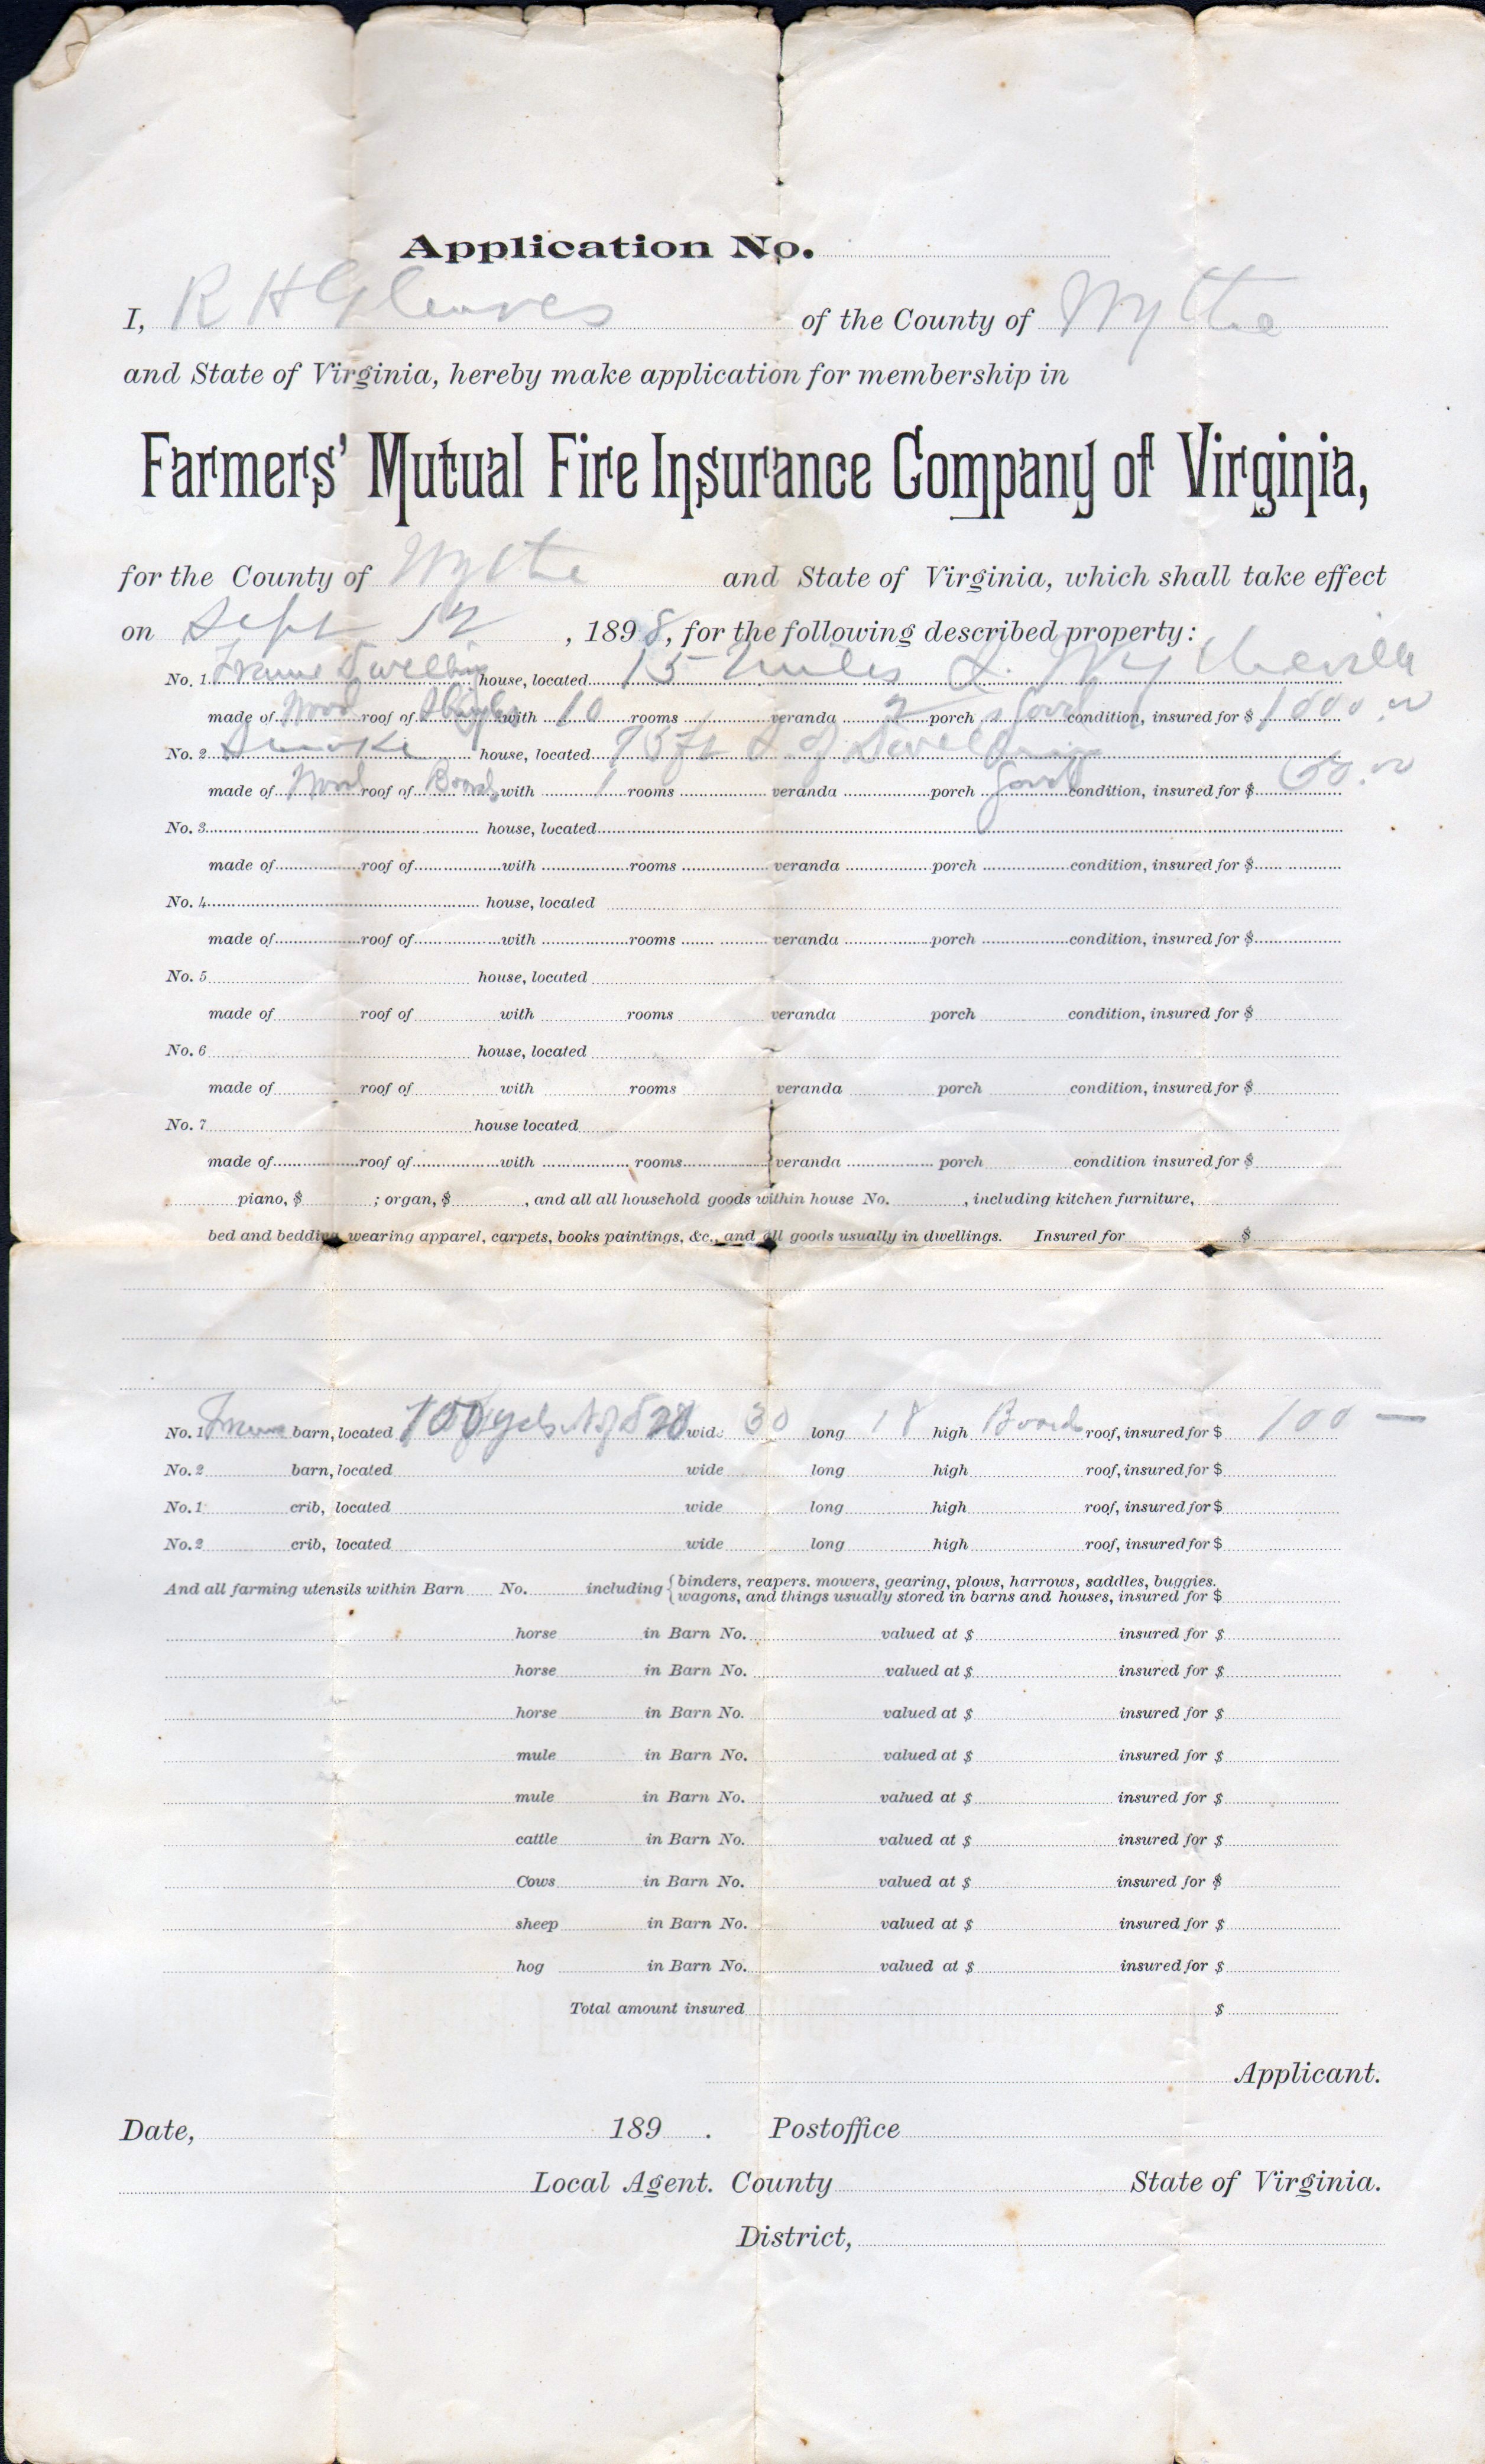 Application No.
I, R H Gleaves of the County of Wythe
and State of Virginia, hereby make application for membership in
Farmers' Mutual Fire Insurance Company of Virginia,
for the County of Wythe and State of Virginia, which shall take effect
on Sept 12, 1898, for the following described property:
No. 1 Frame Dwelling house, located 15 miles Wytheville
made of Wood roof of Shingles with 10 rooms veranda 2 porch s Good condition, insured for $ 1000.00
No. 2 Smoke house, located 75 ft of Dwelling
made of Wood roof of Boards with 1 rooms veranda porch Good condition, insured for $
No. 3 house, located
made of roof of with rooms veranda porch condition, insured for $
No. 4 house, located
made of roof of with rooms veranda porch condition, insured for $
No. 5 house, located
made of roof of with rooms veranda porch condition, insured for $
No. 6 house, located
made of roof of with rooms veranda porch condition, insured for $
No. 7 house located
made of roof of with rooms veranda porch condition insured for $
piano, $ ; organ, $ , and all all household goods within house No. , including kitchen furniture,
bed and bedding wearing apparel, carpets, books paintings, &c., and all goods usually in dwellings. Insured for $
No. 1 Frame barn, located 100 yds of 20 wide 30 long 18 high Boards roof, insured for $ 100 —
No. 2 barn, located wide long high roof, insured for $
No. 1 crib, located wide long high roof, insured for $
No. 2 crib, located wide long high roof, insured for $
And all farming utensils within Barn No. including { binders, reapers. mowers, gearing, plows, harrows, saddles, buggies.
wagons, and things usually stored in barns and houses, insured for $
horse in Barn No. valued at $ insured for $
horse in Barn No. valued at $ insured for $
horse in Barn No. valued at $ insured for $
mule in Barn No. valued at $ insured for $
mule in Barn No. valued at $ insured for $
cattle in Barn No. valued at $ insured for $
Cows in Barn No. valued at $ insured for $
sheep in Barn No. valued at $ insured for $
hog in Barn No. valued at $ insured for $
Total amount insured $
Applicant.
Date, 189 . Postoffice
Local Agent. County State of Virginia.
District,